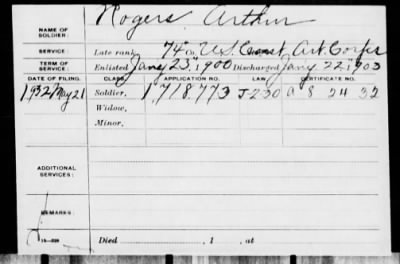 Rogers Arthur
NAME OF SOLDIER:
SERVICE Late rank, 74" Co. U.S. Coast Art. Corps
TERM OF SERVICE: Enlisted Jany 23", 1900 Discharged Jany 22", 1903
DATE OF FILING. CLASS. APPLICATION NO. LAW. CERTIFICATE NO.
1932/May 21 Soldier, 1"718.773 J-230 A 8 24 32
Widow,
Minor,
ADDITIONAL SERVICES:
REMARKS:
Died , 1 , at